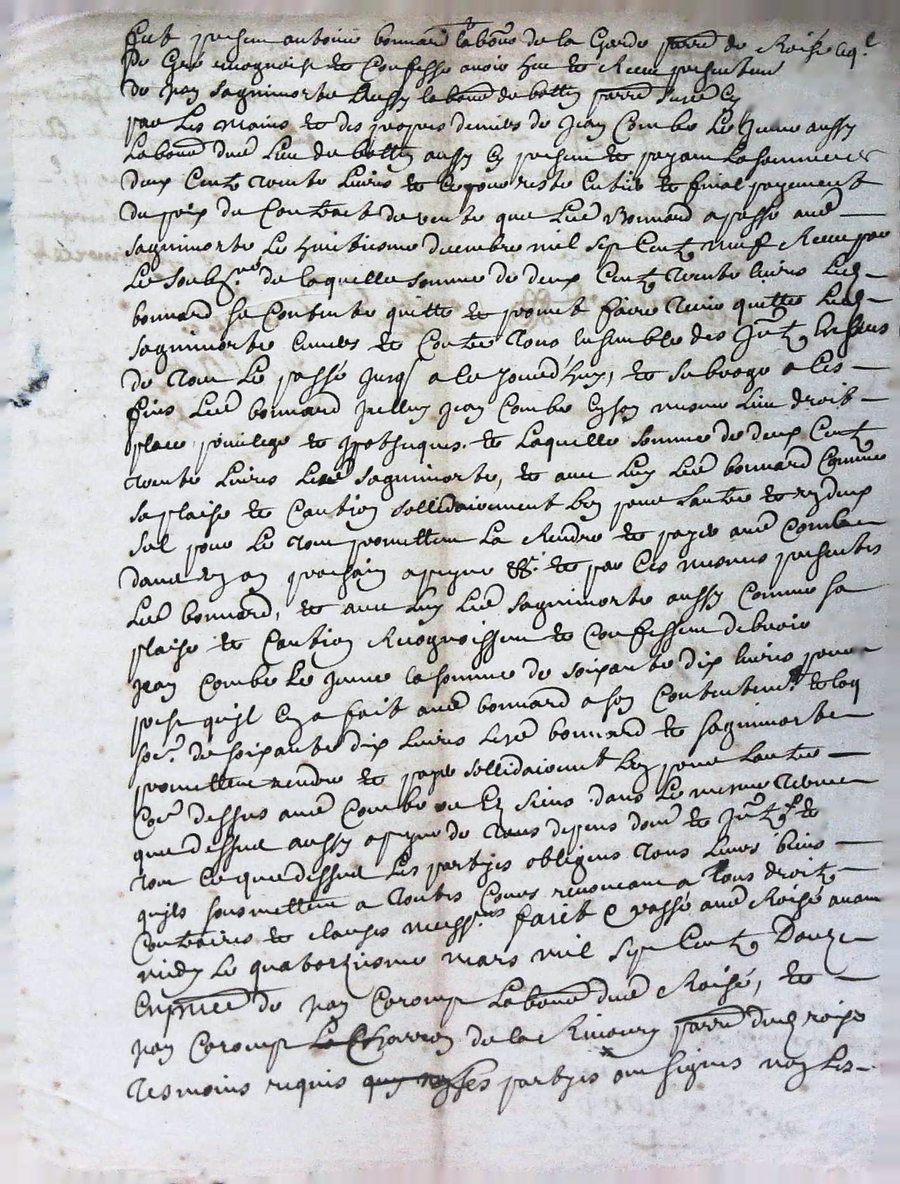 fut présent antoine bonnard labour de la Garde parre de Roisé leql
De Gré recognoist et Confesse avoir heu et Receu présentemt
de Jean Sagnimorte Aussy labour de parre Susd Ey
par Les mains et des propres deniers de Jean Combe Le Jeune aussy
Labour dud Lieu de aussy Ey présent et payant La somme de
deux Centz trente Livres et Ce pour reste Entier et final payement
du prix du Contract de vente que Led Bonnard a passé aud
Sagnimorte Le huictiesme décembre mil sept Centz neuf Receu par
Le Soubzné de laquelle somme de deux Centz trente livres Led
bonnard se Contente quitte et promet faire tenir quitte Led
Sagnimorte Envers et Contre tous Ensemble des Intz
de tout Le passé jusq a ce jourd'huy, et subroge a ces
fins Led bonnard Icelluy Jean Combe Ey son mesme Lieu droit
place, privilege et hypotheques et Laquelle Somme de deux Centz
trente Livres Led Sagnimorte, et avec Luy Led bonnard Comme
sa plaise et Caution sollidairement L'un pour Lautre et un deux
sel pour Le tout promettent La Rendre et payer aud Combe
dans un an prochain a peyne &c. et par Ces mesmes présentes
Led bonnard, et avec Luy Led Sagnimorte aussy Comme sa
plaise et Caution Recognoissent et Confessent debvoir
Jean Combe Le Jeune la somme de soixante dix livres pour
prest qu'il Ey a fait aud bonnard a son Contentemt et laq
soe de soixante dix Livres Lesd bonnard et Sagnimorte
promettent rendre et payer sollidairemt L'un pour Lautre
Coe dessus aud Combe ou Ez siens dans Le mesme terme
que dessus aussy a peyne de tous depens dom et Intz et
tout Ce que dessus Les partyes obligent tous Leurs biens
qu'ils soumettent a toutes Cours renonceant a tous droitz
Contraires et Clauses Faict & passé aud Roisé avant
midy Le quatorziesme mars mil sept Centz Douze
En prnce de Jean Caromp Labour dud Roisé, et
Jean Caromp Charron de la Rivoury parre dud roisé
tesmoins requis Les partyes ont signés non Les